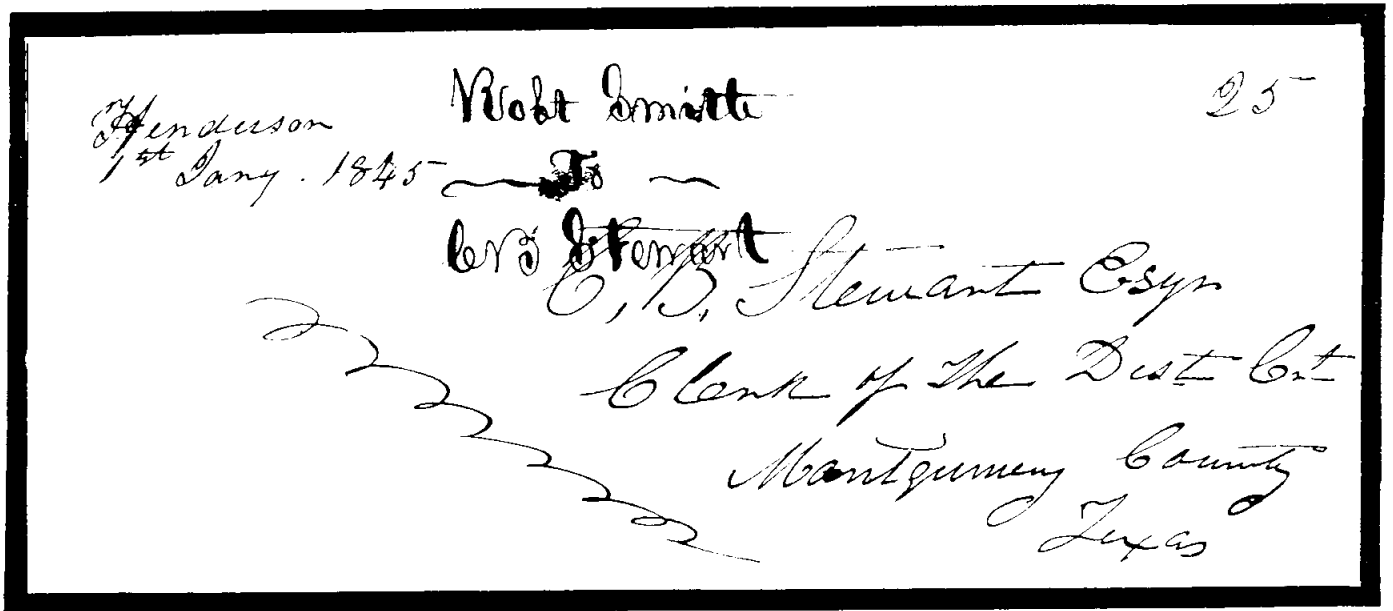 Henderson
1st Jany. 1845
Robt Smith
To
C B Stewart
25
C, B, Stewart Esqr
Clerk of the Dist Crt
Montgumery County
Texas